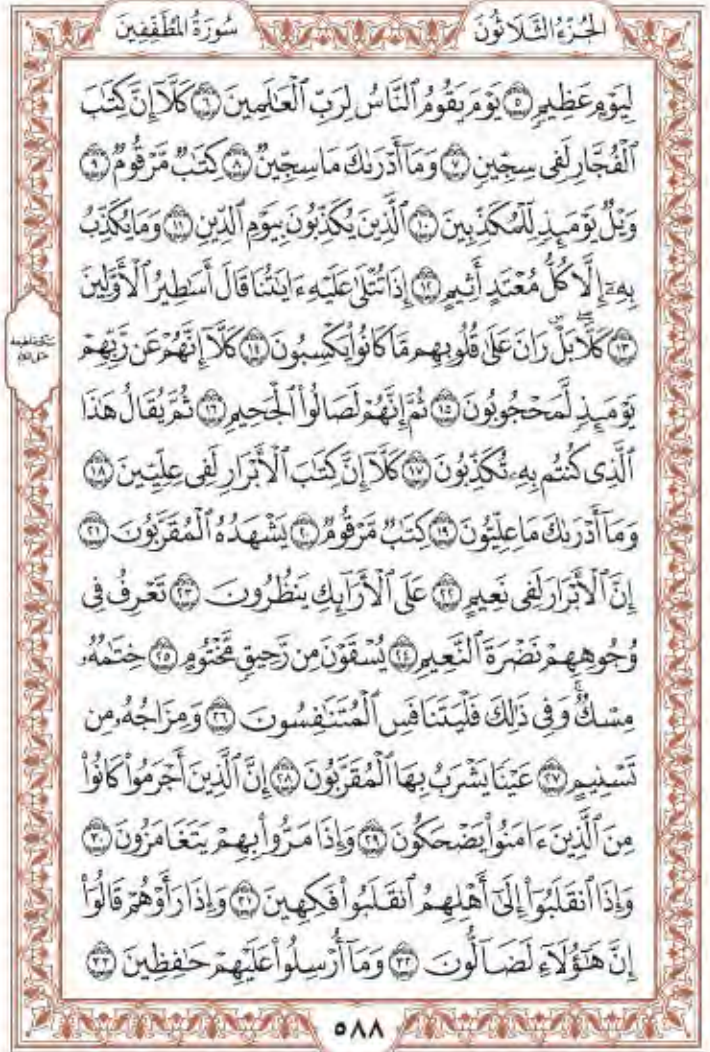 سُورَةُ المُطَفِّفِينَ
الجُزْءُ الثَّلَاثُونَ
لِيَوْمٍ عَظِيمٍ ٥ يَوْمَ يَقُومُ ٱلنَّاسُ لِرَبِّ ٱلْعَٰلَمِينَ ٦ كَلَّآ إِنَّ كِتَٰبَ
ٱلْفُجَّارِ لَفِى سِجِّينٍ ٧ وَمَآ أَدْرَىٰكَ مَا سِجِّينٌ ٨ كِتَٰبٌ مَّرْقُومٌ ٩
وَيْلٌ يَوْمَئِذٍ لِّلْمُكَذِّبِينَ ١٠ ٱلَّذِينَ يُكَذِّبُونَ بِيَوْمِ ٱلدِّينِ ١١ وَمَا يُكَذِّبُ
بِهِۦٓ إِلَّا كُلُّ مُعْتَدٍ أَثِيمٍ ١٢ إِذَا تُتْلَىٰ عَلَيْهِ ءَايَٰتُنَا قَالَ أَسَٰطِيرُ ٱلْأَوَّلِينَ
١٣ كَلَّاۖ بَلْۜ رَانَ عَلَىٰ قُلُوبِهِم مَّا كَانُوا۟ يَكْسِبُونَ ١٤ كَلَّآ إِنَّهُمْ عَن رَّبِّهِمْ
يَوْمَئِذٍ لَّمَحْجُوبُونَ ١٥ ثُمَّ إِنَّهُمْ لَصَالُوا۟ ٱلْجَحِيمِ ١٦ ثُمَّ يُقَالُ هَٰذَا
ٱلَّذِى كُنتُم بِهِۦ تُكَذِّبُونَ ١٧ كَلَّآ إِنَّ كِتَٰبَ ٱلْأَبْرَارِ لَفِى عِلِّيِّينَ ١٨
وَمَآ أَدْرَىٰكَ مَا عِلِّيُّونَ ١٩ كِتَٰبٌ مَّرْقُومٌ ٢٠ يَشْهَدُهُ ٱلْمُقَرَّبُونَ ٢١
إِنَّ ٱلْأَبْرَارَ لَفِى نَعِيمٍ ٢٢ عَلَى ٱلْأَرَآئِكِ يَنظُرُونَ ٢٣ تَعْرِفُ فِى
وُجُوهِهِمْ نَضْرَةَ ٱلنَّعِيمِ ٢٤ يُسْقَوْنَ مِن رَّحِيقٍ مَّخْتُومٍ ٢٥ خِتَٰمُهُۥ
مِسْكٌۚ وَفِى ذَٰلِكَ فَلْيَتَنَافَسِ ٱلْمُتَنَٰفِسُونَ ٢٦ وَمِزَاجُهُۥ مِن
تَسْنِيمٍ ٢٧ عَيْنًا يَشْرَبُ بِهَا ٱلْمُقَرَّبُونَ ٢٨ إِنَّ ٱلَّذِينَ أَجْرَمُوا۟ كَانُوا۟
مِنَ ٱلَّذِينَ ءَامَنُوا۟ يَضْحَكُونَ ٢٩ وَإِذَا مَرُّوا۟ بِهِمْ يَتَغَامَزُونَ ٣٠
وَإِذَا ٱنقَلَبُوٓا۟ إِلَىٰٓ أَهْلِهِمُ ٱنقَلَبُوا۟ فَكِهِينَ ٣١ وَإِذَا رَأَوْهُمْ قَالُوٓا۟
إِنَّ هَٰٓؤُلَآءِ لَضَآلُّونَ ٣٢ وَمَآ أُرْسِلُوا۟ عَلَيْهِمْ حَٰفِظِينَ ٣٣
٥٨٨